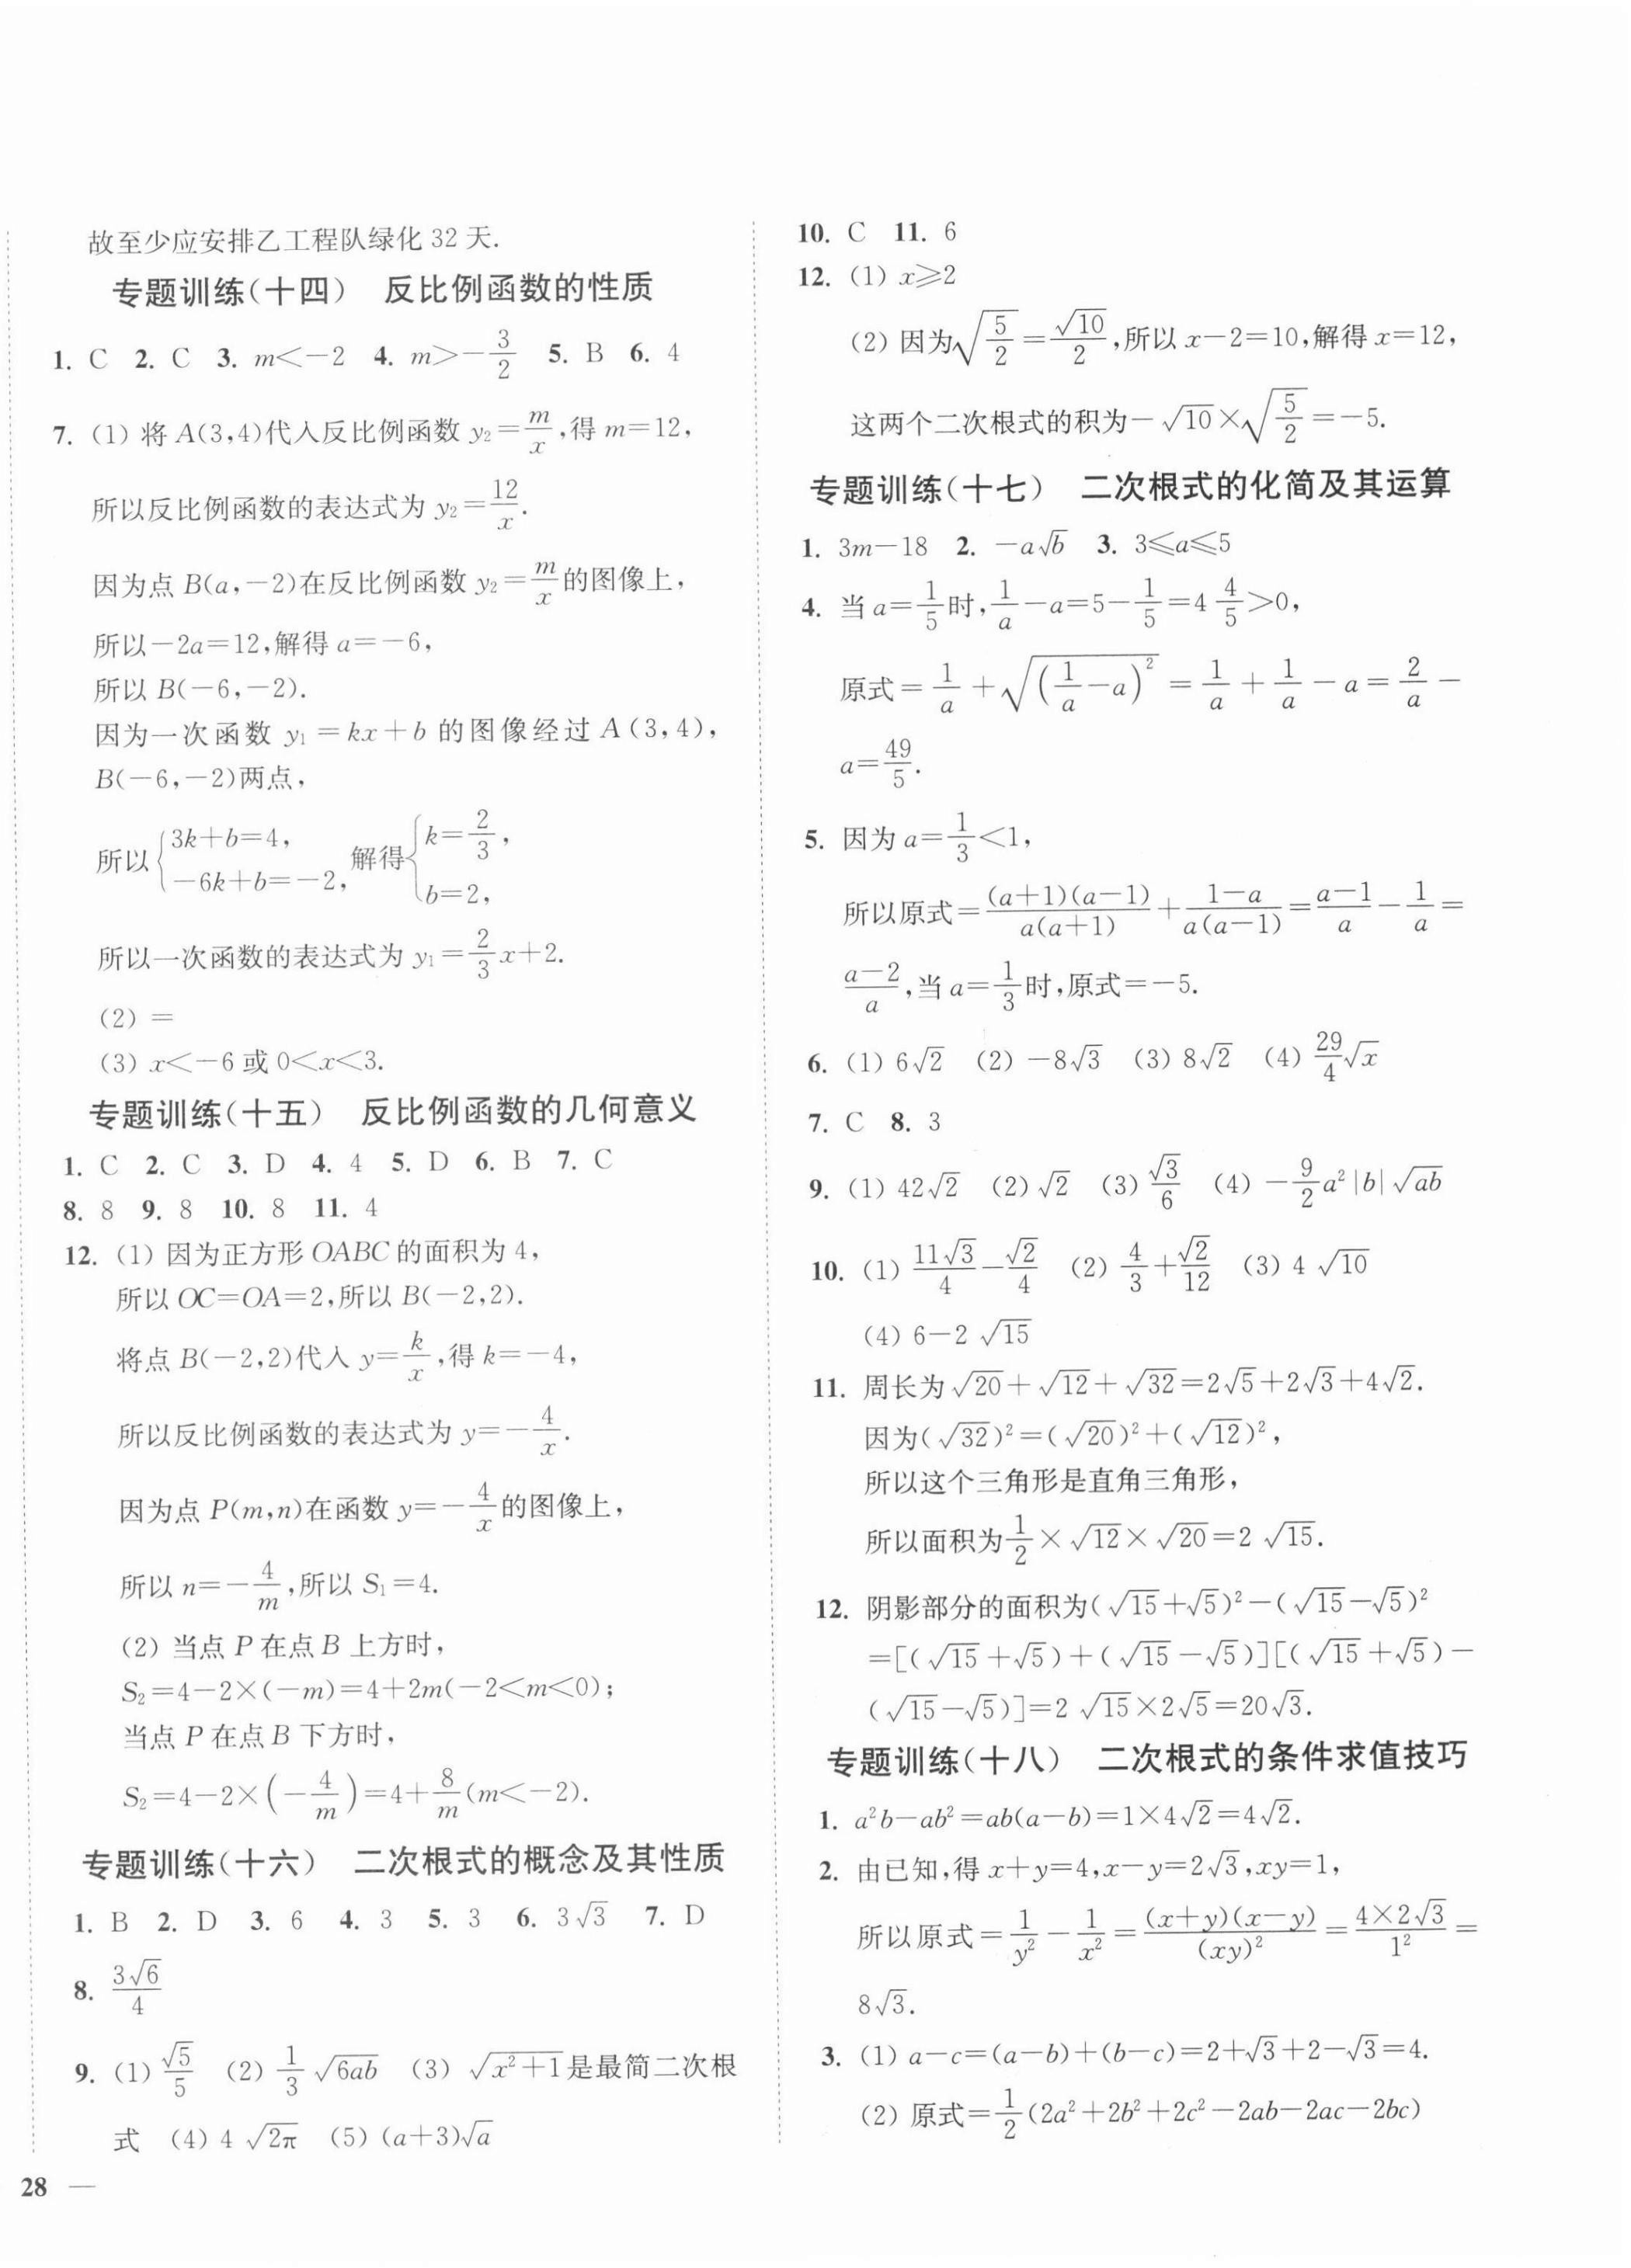 故至少应安排乙工程队绿化 32 天.
专题训练(十四) 反比例函数的性质
1. C 2. C 3. m<-2 4. m>-\frac{3}{2} 5. B 6. 4
7. (1) 将 A(3,4)代入反比例函数 y₂=\frac{m}{x},得 m=12,
所以反比例函数的表达式为 y₂=\frac{12}{x}.
因为点 B(a,-2)在反比例函数 y₂=\frac{m}{x}的图像上,
所以-2a=12,解得 a=-6,
所以 B(-6,-2).
因为一次函数 y₁=kx+b 的图像经过 A(3,4),
B(-6,-2)两点,
所以\begin{cases}3k+b=4,\\-6k+b=-2,\end{cases}解得\begin{cases}k=\frac{2}{3},\\b=2,\end{cases}
所以一次函数的表达式为 y₁=\frac{2}{3}x+2.
(2) =
(3) x<-6 或 0<x<3.
专题训练(十五) 反比例函数的几何意义
1. C 2. C 3. D 4. 4 5. D 6. B 7. C
8. 8 9. 8 10. 8 11. 4
12. (1) 因为正方形 OABC 的面积为 4,
所以 OC=OA=2,所以 B(-2,2).
将点 B(-2,2)代入 y=\frac{k}{x},得 k=-4,
所以反比例函数的表达式为 y=-\frac{4}{x}.
因为点 P(m,n)在函数 y=-\frac{4}{x}的图像上,
所以 n=-\frac{4}{m},所以 S₁=4.
(2) 当点 P 在点 B 上方时,
S₂=4-2×(-m)=4+2m(-2<m<0);
当点 P 在点 B 下方时,
S₂=4-2×(-\frac{4}{m})=4+\frac{8}{m}(m<-2).
专题训练(十六) 二次根式的概念及其性质
1. B 2. D 3. 6 4. 3 5. 3 6. 3√3 7. D
8. \frac{3√6}{4}
9. (1) \frac{√5}{5} (2) \frac{1}{3}\sqrt{6ab} (3) \sqrt{x²+1}是最简二次根
式 (4) 4\sqrt{2π} (5) (a+3)√a
28 —
10. C 11. 6
12. (1) x⩾2
(2) 因为\sqrt{\frac{5}{2}}=\frac{\sqrt{10}}{2},所以 x-2=10,解得 x=12,
这两个二次根式的积为-\sqrt{10}×\sqrt{\frac{5}{2}}=-5.
专题训练(十七) 二次根式的化简及其运算
1. 3m-18 2. -a√b 3. 3⩽a⩽5
4. 当 a=\frac{1}{5}时,\frac{1}{a}-a=5-\frac{1}{5}=4\frac{4}{5}>0,
原式=\frac{1}{a}+\sqrt{(\frac{1}{a}-a)^2}=\frac{1}{a}+\frac{1}{a}-a=\frac{2}{a}-
a=\frac{49}{5}.
5. 因为 a=\frac{1}{3}<1,
所以原式=\frac{(a+1)(a-1)}{a(a+1)}+\frac{1-a}{a(a-1)}=\frac{a-1}{a}-\frac{1}{a}=
\frac{a-2}{a},当 a=\frac{1}{3}时,原式=-5.
6. (1) 6√2 (2) -8√3 (3) 8√2 (4) \frac{29}{4}√x
7. C 8. 3
9. (1) 42√2 (2) √2 (3) \frac{√3}{6} (4) -\frac{9}{2}a²|b|\sqrt{ab}
10. (1) \frac{11√3}{4}-\frac{√2}{4} (2) \frac{4}{3}+\frac{√2}{12} (3) 4\sqrt{10}
(4) 6-2\sqrt{15}
11. 周长为\sqrt{20}+\sqrt{12}+\sqrt{32}=2√5+2√3+4√2.
因为(\sqrt{32})²=(\sqrt{20})²+(\sqrt{12})²,
所以这个三角形是直角三角形,
所以面积为\frac{1}{2}×\sqrt{12}×\sqrt{20}=2\sqrt{15}.
12. 阴影部分的面积为(\sqrt{15}+√5)²-(\sqrt{15}-√5)²
=[(\sqrt{15}+√5)+(\sqrt{15}-√5)][(\sqrt{15}+√5)-
(\sqrt{15}-√5)]=2\sqrt{15}×2√5=20√3.
专题训练(十八) 二次根式的条件求值技巧
1. a²b-ab²=ab(a-b)=1×4√2=4√2.
2. 由已知,得 x+y=4,x-y=2√3,xy=1,
所以原式=\frac{1}{y²}-\frac{1}{x²}=\frac{(x+y)(x-y)}{(xy)²}=\frac{4×2√3}{1²}=
8√3.
3. (1) a-c=(a-b)+(b-c)=2+√3+2-√3=4.
(2) 原式=\frac{1}{2}(2a²+2b²+2c²-2ab-2ac-2bc)